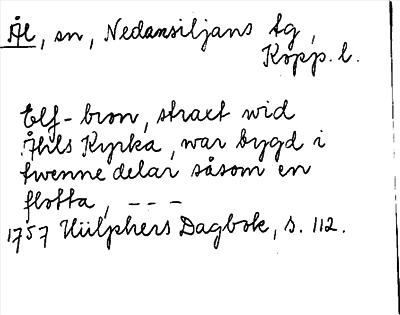 Ål, sn, Nedansiljans tg,
Kopp. l.
Elf-bron, straxt wid
Åhls Kyrka, war bygd i
twenne delar såsom en
flotta, ---
1757 Hülphers Dagbok, s. 112.